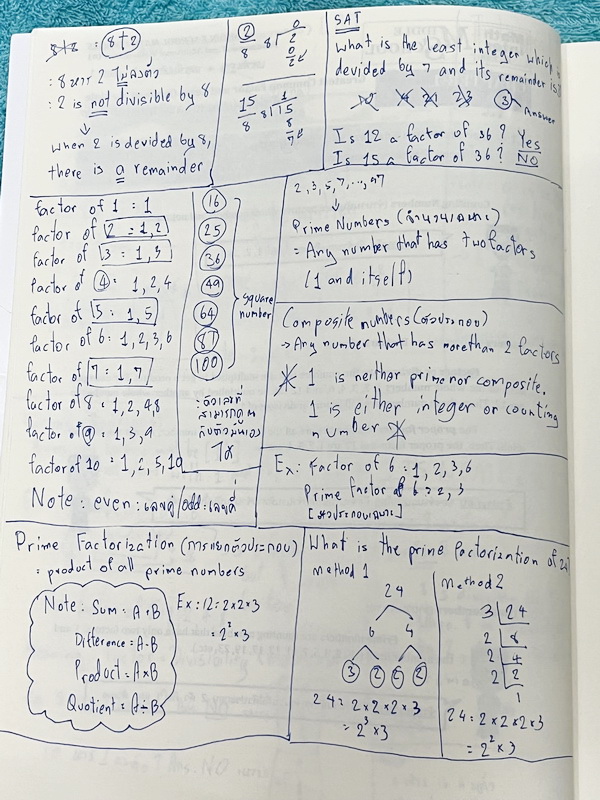 8+2 : 8∤2
: 8 หาร 2 ไม่ลงตัว
: 2 is not divisible by 8
↓
when 2 is devided by 8,
there is a remainder
2
8
0
8 2
0
2
15
8
1
8 15
8
7
SAT
What is the least integer which
devided by 7 and its remainder is
3 Answer
Is 12 a factor of 36? Yes
Is 15 a factor of 36? NO
factor of 1 : 1
factor of 2 : 1,2
factor of 3 : 1,3
factor of 4 : 1,2,4
factor of 5 : 1,5
factor of 6 : 1,2,3,6
factor of 7 : 1,7
factor of 8 : 1,2,4,8
factor of 9 : 1,3,9
factor of 10 = 1,2,5,10
Note: even: เลขคู่/odd: เลขคี่
16
25
36
49
64
81
100
square
number
: ตัวเลขที่
สามารถคูณ
กับตัวมันเอง
ได้
2,3,5,7,...,97
↓
Prime Numbers (จำนวนเฉพาะ)
= Any number that has two factors
(1 and itself)
Composite numbers (ตัวประกอบ)
→ Any number that has more than 2 factors
1 is neither prime nor composite.
1 is either integer or counting
number
Ex: Factor of 6 : 1,2,3,6
Prime factor of 6 = 2,3
[ตัวประกอบเฉพาะ]
Prime Factorization (การแยกตัวประกอบ)
: product of all prime numbers
Note: Sum: A+B
Difference: A-B
Product: A×B
Quotient: A÷B
Ex: 12 = 2×2×3
= 2² × 3
What is the prime factorization of 24
Method 1
24
6 4
3 2 2 2
24 = 2 × 2 × 2 × 3
= 2³ × 3
Method 2
3 24
2 8
2 4
2 2
1
24 = 2 × 2 × 2 × 3
= 2² × 3